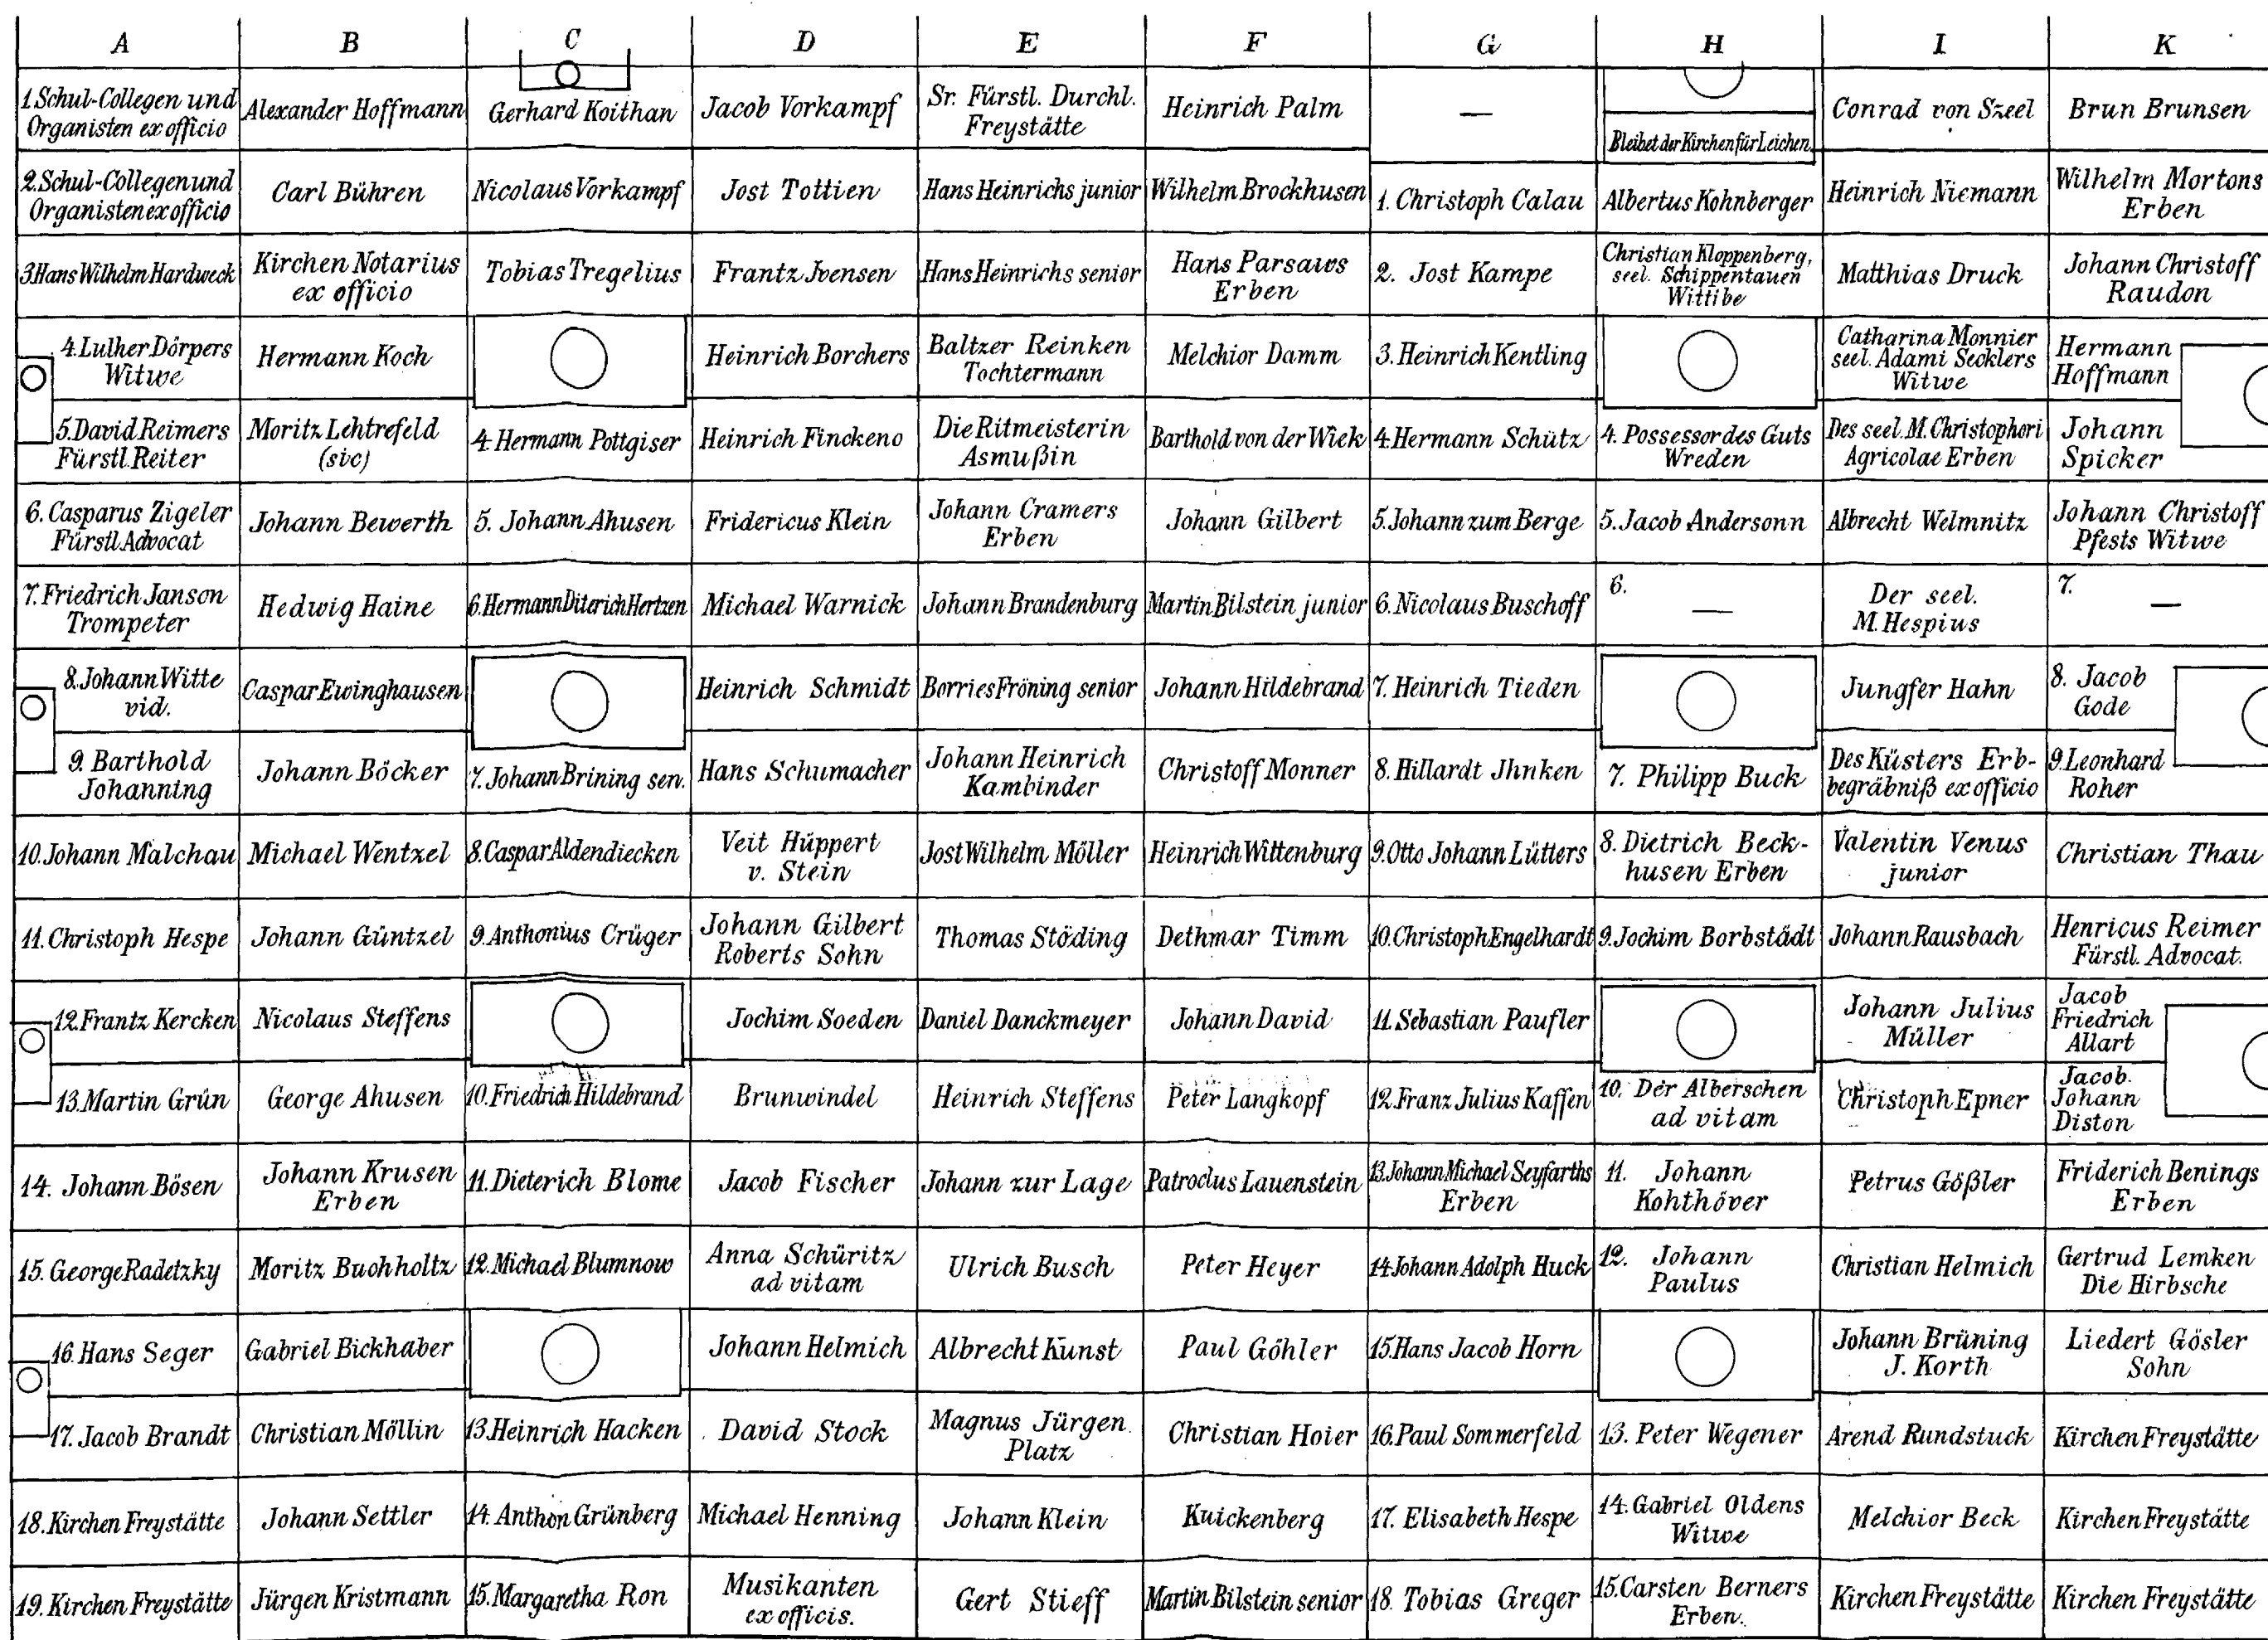 A B C D E F G H I K
1 Schul-Collegen und
Organisten ex officio
Alexander Hoffmann
Gerhard Koithan
Jacob Vorkampf
Sr. Fürstl. Durchl.
Freystätte
Heinrich Palm
—
Bleibet der Kirchen für Leichen
Conrad von Szeel
Brun Brunsen
2. Schul-Collegen und
Organisten ex officio
Carl Bühren
Nicolaus Vorkampf
Jost Tottien
Hans Heinrichs junior
Wilhelm Brockhusen
1. Christoph Calau
Albertus Kohnberger
Heinrich Niemann
Wilhelm Mortons
Erben
3 Hans Wilhelm Hardweck
Kirchen Notarius
ex officio
Tobias Tregelius
Frantz Jvensen
Hans Heinrichs senior
Hans Parsaws
Erben
2. Jost Kampe
Christian Kloppenberg,
seel. Schippentauen
Wittibe
Matthias Druck
Johann Christoff
Raudon
4. Luther Dörpers
Witwe
Hermann Koch
Heinrich Borchers
Baltzer Reinken
Tochtermann
Melchior Damm
3. Heinrich Kentling
Catharina Monnier
seel. Adami Secklers
Witwe
Hermann
Hoffmann
5. David Reimers
Fürstl. Reiter
Moritz Lehtrefeld
(sic)
4. Hermann Pottgiser
Heinrich Finckeno
Die Ritmeisterin
Asmußin
Barthold von der Wiek
4. Hermann Schütz
4. Possessor des Guts
Wreden
Des seel. M. Christophori
Agricolae Erben
Johann
Spicker
6. Casparus Zigeler
Fürstl. Advocat
Johann Bewerth
5. Johann Ahusen
Fridericus Klein
Johann Cramers
Erben
Johann Gilbert
5. Johann zum Berge
5. Jacob Andersonn
Albrecht Welmnitz
Johann Christoff
Pfests Witwe
7. Friedrich Janson
Trompeter
Hedwig Haine
6. Hermann Diterich Hertzen
Michael Warnick
Johann Brandenburg
Martin Bilstein junior
6. Nicolaus Buschoff
6. —
Der seel.
M. Hespius
7. —
8. Johann Witte
vid.
Caspar Ewinghausen
Heinrich Schmidt
Borries Fröning senior
Johann Hildebrand
7. Heinrich Tieden
Jungfer Hahn
8. Jacob
Gode
9. Barthold
Johanning
Johann Böcker
7. Johann Brining sen.
Hans Schumacher
Johann Heinrich
Kambinder
Christoff Monner
8. Hillardt Jhnken
7. Philipp Buck
Des Küsters Erb-
begräbniß ex officio
9. Leonhard
Roher
10. Johann Malchau
Michael Wentzel
8. Caspar Aldendiecken
Veit Hüppert
v. Stein
Jost Wilhelm Möller
Heinrich Wittenburg
9. Otto Johann Lütters
8. Dietrich Beck-
husen Erben
Valentin Venus
junior
Christian Thau
11. Christoph Hespe
Johann Güntzel
9. Anthonius Crüger
Johann Gilbert
Roberts Sohn
Thomas Stöding
Dethmar Timm
10. Christoph Engelhardt
9. Jochim Borbstädt
Johann Rausbach
Henricus Reimer
Fürstl. Advocat.
12. Frantz Kercken
Nicolaus Steffens
Jochim Soeden
Daniel Danckmeyer
Johann David
11. Sebastian Paufler
Johann Julius
Müller
Jacob
Friedrich
Allart
13. Martin Grün
George Ahusen
10. Friedrich Hildebrand
Brunwindel
Heinrich Steffens
Peter Langkopf
12. Franz Julius Kaffen
10. Der Alberschen
ad vitam
Christoph Epner
Jacob.
Johann
Diston
14. Johann Bösen
Johann Krusen
Erben
11. Dieterich Blome
Jacob Fischer
Johann zur Lage
Patroclus Lauenstein
13. Johann Michael Seyfarths
Erben
11. Johann
Kohthöver
Petrus Gößler
Friderich Benings
Erben
15. George Radetzky
Moritz Buchholtz
12. Michael Blumnow
Anna Schüritz
ad vitam
Ulrich Busch
Peter Heyer
14 Johann Adolph Huck
12. Johann
Paulus
Christian Helmich
Gertrud Lemken
Die Hirbsche
16. Hans Seger
Gabriel Bickhaber
Johann Helmich
Albrecht Kunst
Paul Göhler
15. Hans Jacob Horn
Johann Brüning
J. Korth
Liedert Gösler
Sohn
17. Jacob Brandt
Christian Möllin
13. Heinrich Hacken
David Stock
Magnus Jürgen
Platz
Christian Hoier
16. Paul Sommerfeld
13. Peter Wegener
Arend Rundstuck
Kirchen Freystätte
18. Kirchen Freystätte
Johann Settler
14. Anthon Grünberg
Michael Henning
Johann Klein
Kuickenberg
17. Elisabeth Hespe
14. Gabriel Oldens
Witwe
Melchior Beck
Kirchen Freystätte
19. Kirchen Freystätte
Jürgen Kristmann
15. Margaretha Ron
Musikanten
ex officis.
Gert Stieff
Martin Bilstein senior
18. Tobias Greger
15. Carsten Berners
Erben.
Kirchen Freystätte
Kirchen Freystätte